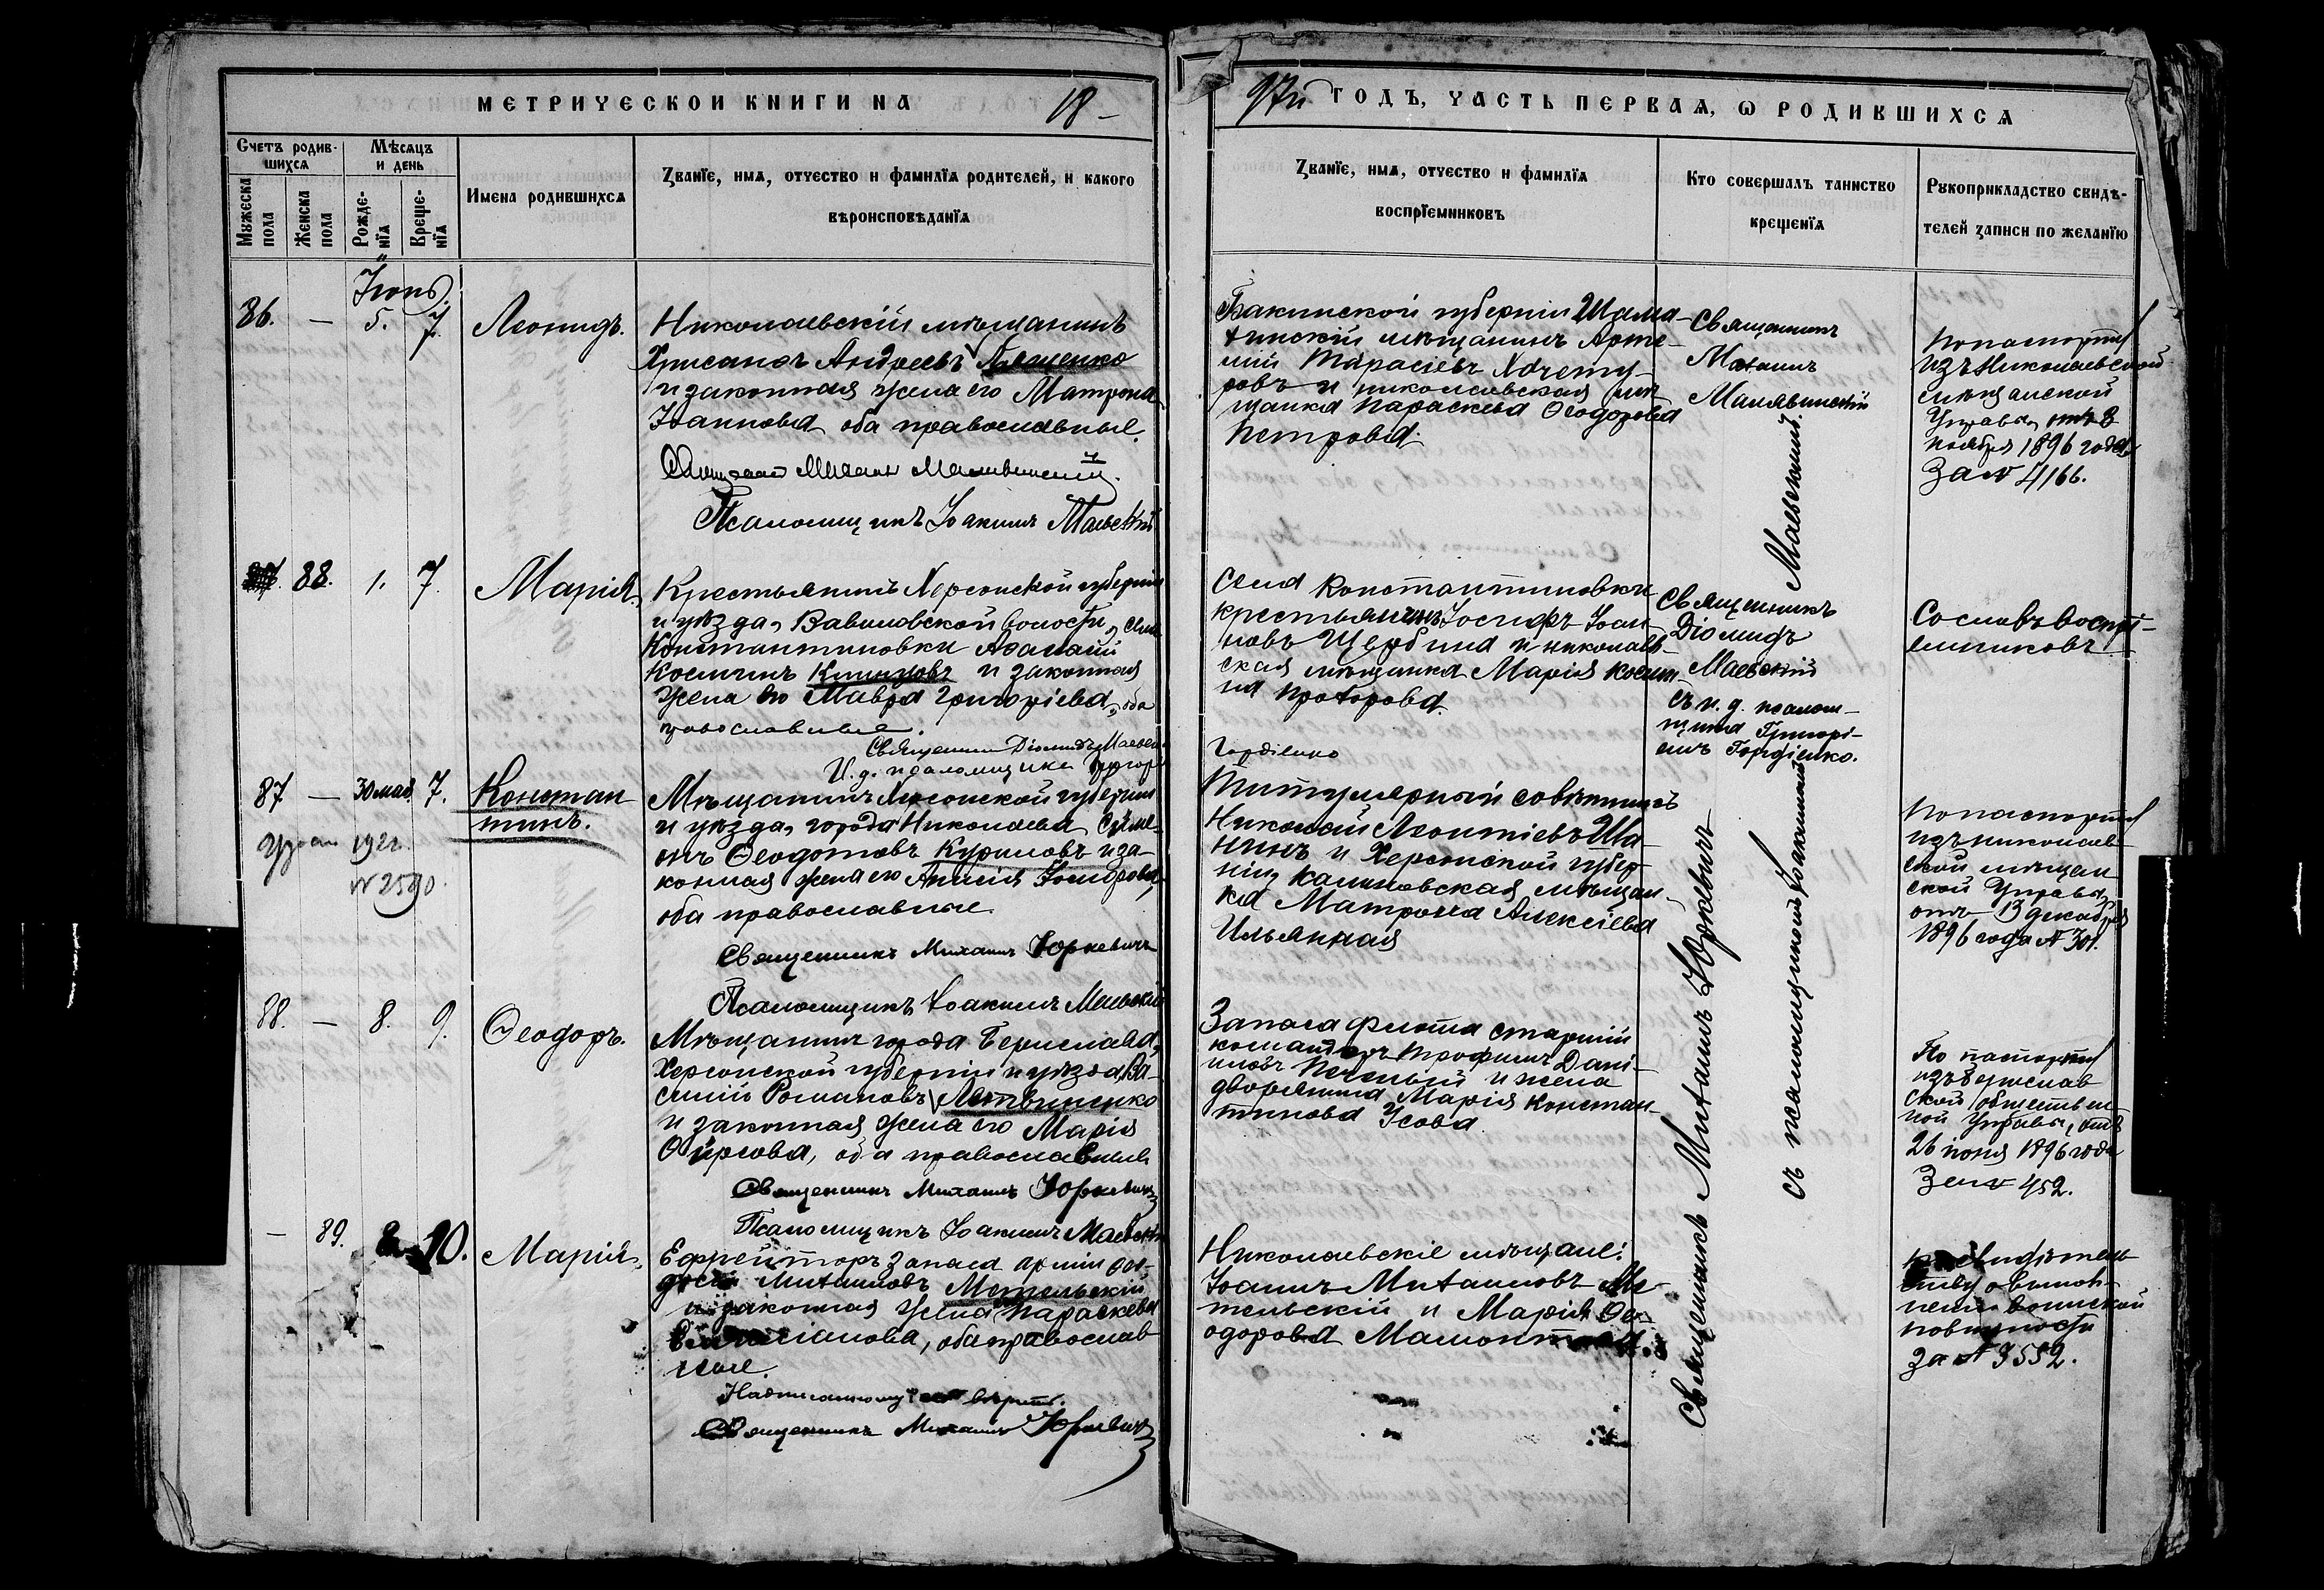 МЕТРИЧЕСКОЙ КНИГИ НА 18-
97й ГОДЪ, ЧАСТЬ ПЕРВАЯ, Ѡ РОДИВШИХСЯ
Счетъ родив-
шихся
Мужеска пола
Женска пола
Мѣсяцъ
и день
Рожде-
нїя
Креще-
нїя
Имена родившихся
Званїе, имя, отчество и фамилїя родителей, и какого
вѣроисповѣданїя
Званїе, имя, отчество и фамилїя
воспрїемниковъ
Кто совершалъ таинство
крещенїя
Рукоприкладство свидѣ-
телей записи по желанїю
Іюнь
86. — 5. 7. Леонидъ.
Николаевскій мѣщанинъ
Хрисанѳъ Андреевъ
и законная жена его Матрона
Іоаннова оба православные.
Священникъ Михаилъ Малявинскій.
Псаломщикъ Іоакимъ Маевскій
Бакинской губерніи Шама-
хинскій мѣщанинъ Арте-
мій Тарасіевъ
и николаевская мѣ-
щанка Параскева Ѳеодорова
Петрова.
Священникъ
Михаилъ
Малявинскій
По паспорту
изъ Николаевской
мѣщанской
Управы, отъ 8
ноября 1896 года
за № 4166.
88. 1. 7. Марія.
Крестьянинъ Херсонской губерніи
и уѣзда, Вавиловской волости, села
Константиновки Аѳанасій
Косминъ Климовъ и законная
жена его Мавра Григоріева, оба
православные.
Священникъ Діомидъ Маевскій
И. д. псаломщика Григорій
Гордіенко
Села Константиновки
крестьянинъ Іосифъ Іоан-
новъ Щербина и николаев-
ская мѣщанка Марія Косми-
на Прохорова.
Священникъ
Діомидъ
Маевскій
съ и. д. псалом-
щика Григорі-
емъ Гордіенко.
Со словъ воспрі-
емниковъ
87 — 30 мая. 7. Констан
тинъ.
1922.
№ 2590.
Мѣщанинъ Херсонской губерніи
и уѣзда, города Николаева Симе-
онъ Ѳеодотовъ Куриловъ и за-
конная жена его Анисія Исидорова
оба православные.
Священникъ Михаилъ Юркевичъ
Псаломщикъ Іоакимъ Маевскій
Титулярный совѣтникъ
Николай Леонтіевъ Ша-
нинъ и Херсонской губер-
ніи, Калиновская мѣщан-
ка Матрона Алексіева
Ильяная
По паспорту
изъ николаев-
ской мѣщан-
ской Управы,
отъ 13 декабря
1896 года № 301.
88. — 8. 9. Ѳеодоръ.
Мѣщанинъ города Берислава,
Херсонской губерніи и уѣзда, Ва-
силій Романовъ Литвиненко
и законная жена его Марія
Ѳирсова, оба православные
Священникъ Михаилъ Юркевичъ
Псаломщикъ Іоакимъ Маевскій
Запаса флота старшій
командоръ Трофимъ Дани-
ловъ и жена
дворянина Марія Констан-
тинова Усова.
По паспорту
изъ Берислав
ской обществен
ной Управы, отъ
26 іюня 1896 года
За № 452.
— 89. 8. 10. Марія.
Ефрейторъ запаса арміи
Михаиловъ Метельскій
и законная жена Параскева
оба православ
ные.
вѣрить.
Священникъ Михаилъ Юркевичъ
Николаевскіе мѣщане:
Іоаннъ Михаиловъ Ме-
тельскій и Марія Ѳе-
одорова
Священникъ Михаилъ Юркевичъ
съ псаломщикомъ Іоакимомъ
Маевскимъ.
свидѣтель
ству о выпол-
неніи воинской
повинности
за № 3552.